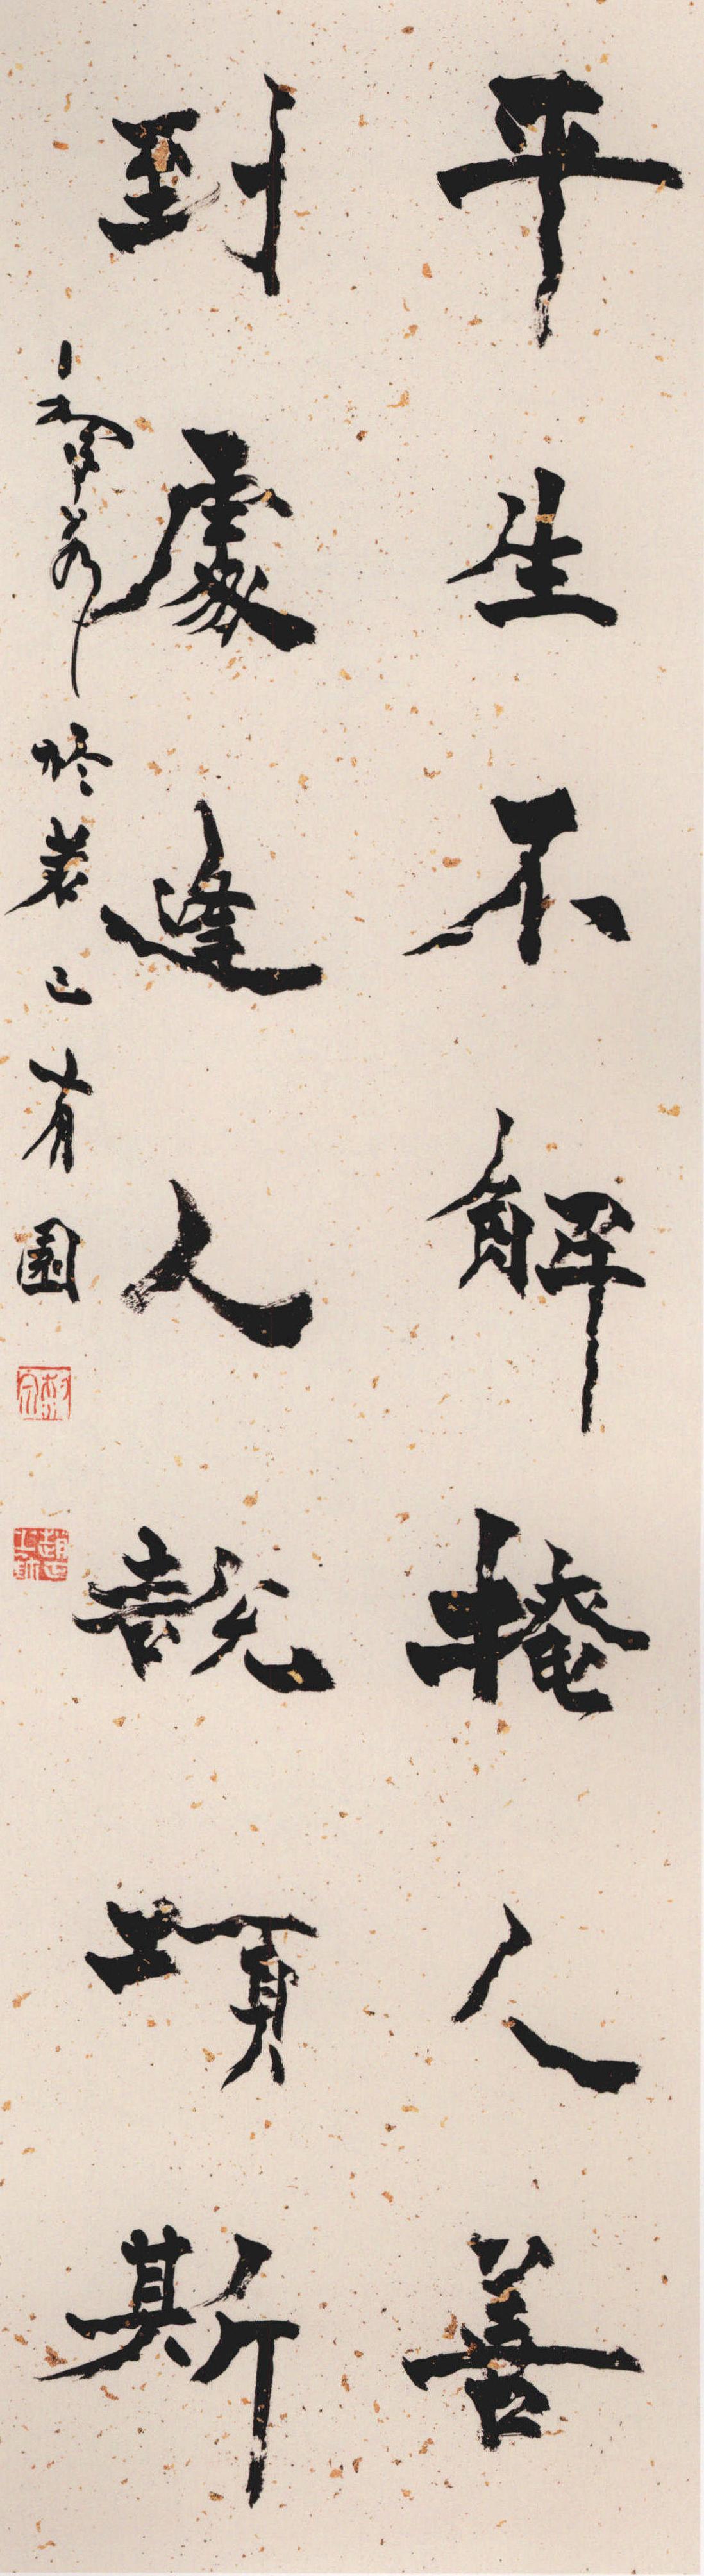 平生不解掩人善
到處逢人説項斯
於若己有園